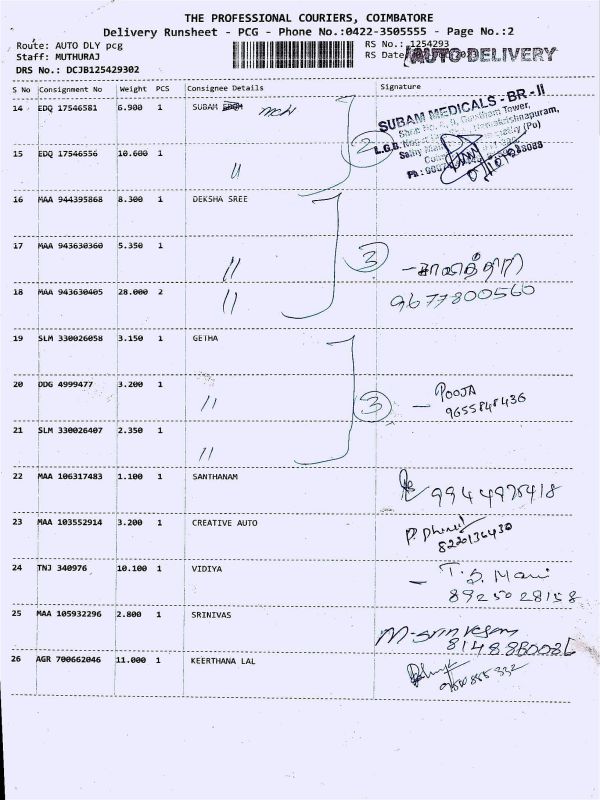 THE PROFESSIONAL COURIERS, COIMBATORE
Delivery Runsheet - PCG - Phone No.:0422-3505555 - Page No.:2
Route: AUTO DLY pcg RS No.: 1254293
Staff: MUTHURAJ RS Date AUTO DELIVERY
DRS No.: DCJB125429302
S No Consignment No Weight PCS Consignee Details Signature
14 EDQ 17546581 6.900 1 SUBAM
SUBAM MEDICALS - BR - II
15 EDQ 17546556 10.600 1 〃 2
16 MAA 944395868 8.300 1 DEKSHA SREE
17 MAA 943630360 5.350 1 〃 3
18 MAA 943630405 28.000 2 〃 9677800560
19 SLM 330026058 3.150 1 GETHA
20 DDG 4999477 3.200 1 〃 3 - POOJA
9655848436
21 SLM 330026407 2.350 1 〃
22 MAA 106317483 1.100 1 SANTHANAM 9944975418
23 MAA 103552914 3.200 1 CREATIVE AUTO
8220136430
24 TNJ 340976 10.100 1 VIDIYA - T. S. Mani
8925028158
25 MAA 105932296 2.800 1 SRINIVAS
26 AGR 700662046 11.000 1 KEERTHANA LAL